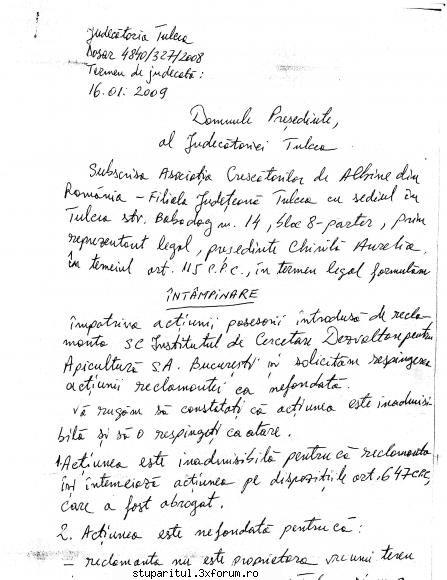 Judecătoria Tulcea
Dosar 4840/327/2008
Termen de judecată:
16.01.2009
Domnule Președinte,
al Judecătoriei Tulcea
Subscrisa Asociația Crescătorilor de Albine din
România – Filiala Județeană Tulcea cu sediul în
Tulcea str. Babadag nr. 14, bloc 8-parter, prin
reprezentant legal, președinte Chirilă Aurelia,
în temeiul art. 115 C.P.C., în termen legal formulăm
ÎNTÂMPINARE
împotriva acțiunii posesorii introdusă de recla-
manta SC Institutul de Cercetare Dezvoltare pentru
Apicultură SA. București și solicităm respingerea
acțiunii reclamantei ca nefondată.
Vă rugăm să constatați că acțiunea este inadmisi-
bilă și să o respingeți ca atare.
1. Acțiunea este inadmisibilă pentru că reclamanta
își întemeiază acțiunea pe dispozițiile art. 647 CPC,
care a fost abrogat.
2. Acțiunea este nefondată pentru că:
– reclamanta nu este proprietara vreunui teren
stuparitul.3xforum.ro